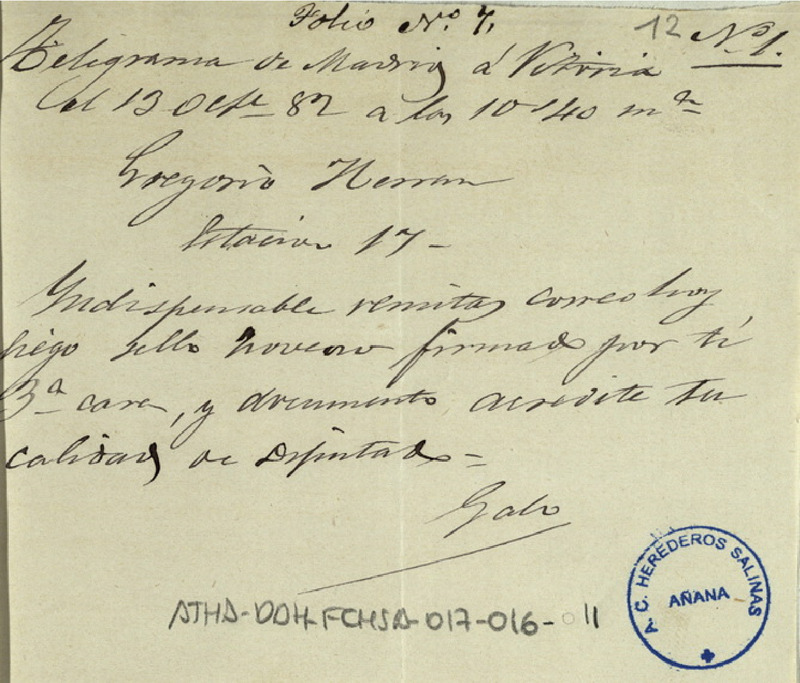 Folio N.º 7.
12 Nº 1.
Telegrama de Madrid á Vitoria
el 13 Octe 82 a las 10 40 mª
Gregorio Herran
Estacion 17 -
Indispensable remitas correo hoy
pliego sello noveno firmado por ti
3ª cara, y documento acredite tu
calidad de Diputado =
Galo
A.C. HEREDEROS SALINAS
AÑANA
ATHA-DAH-FCHSA-017-016-011